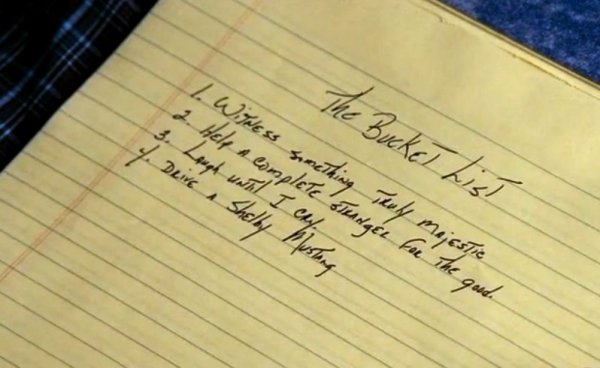 The Bucket List
1. Witness something truly majestic
2 Help a complete stranger for the good.
3. Laugh until I cry
4. Drive a Shelby Mustang